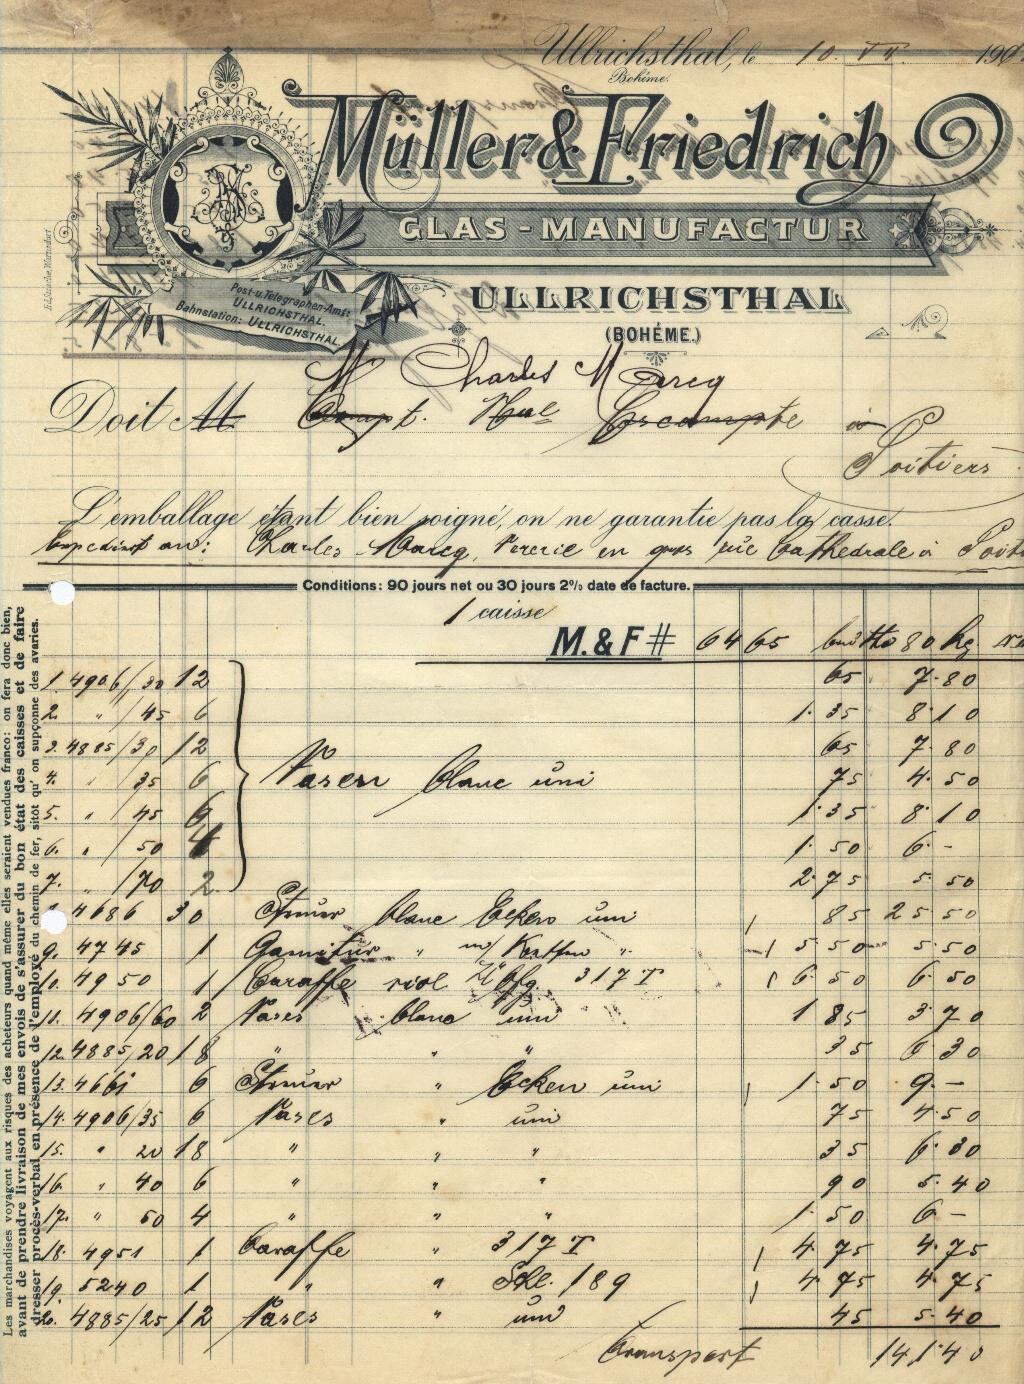 Ullrichsthal, le 10. VII. 190
Bohême.
Müller & Friedrich
GLAS-MANUFACTUR
Post-u.Telegraphen-Amt:
ULLRICHSTHAL.
Bahnstation: ULLRICHSTHAL.
ULLRICHSTHAL
(BOHÊME.)
M Charles Marcq
Doit M Compt. Nal Escompte à
Poitiers
L'emballage étant bien soigné, on ne garantie pas la casse.
Charles Marcq, Verrerie en gros rue Cathedrale à Poiti
Conditions: 90 jours net ou 30 jours 2% date de facture.
1 caisse
M. & F # 6465 brutto 80 kg
1. 4906/30 12 65 7.80
2. " /45 6 1.35 8.10
3. 4885/30 12 65 7.80
4. " 35 6 Vasen blanc uni 75 4.50
5. " 45 6 1.35 8.10
6. " /50 4 1.50 6.-
7. " /70 2 2.75 5.50
4686 30 blanc Ecken uni 85 25 50
9. 4745 1 Garnitur " " 5.50 5.50
10. 4950 1 Caraffe 317 T 6.50 6.50
11. 4906/60 2 Vases blanc uni 1 85 3.70
12. 4885/20 18 " " " 35 6 30
13. 4661 6 " Ecken uni 1.50 9.-
14. 4906/35 6 Vases " uni 75 4.50
15. " 20 18 " " " 35 6.30
16. " 40 6 " " " 90 5.40
17. " 50 4 " " " 1.50 6 -
18. 4951 1 Caraffe " 317 T 4.75 4.75
19. 5240 1 " " Schl. 189 4.75 4.75
20. 4885/25 12 Vases " uni 45 5.40
Transport 141.40
Les marchandises voyagent aux risques des acheteurs quand même elles seraient vendues franco: on fera donc bien,
avant de prendre livraison de mes envois de s'assurer du bon état des caisses et de faire
dresser procès-verbal en présence de l'employé du chemin de fer, sitôt qu' on supçonne des avaries.